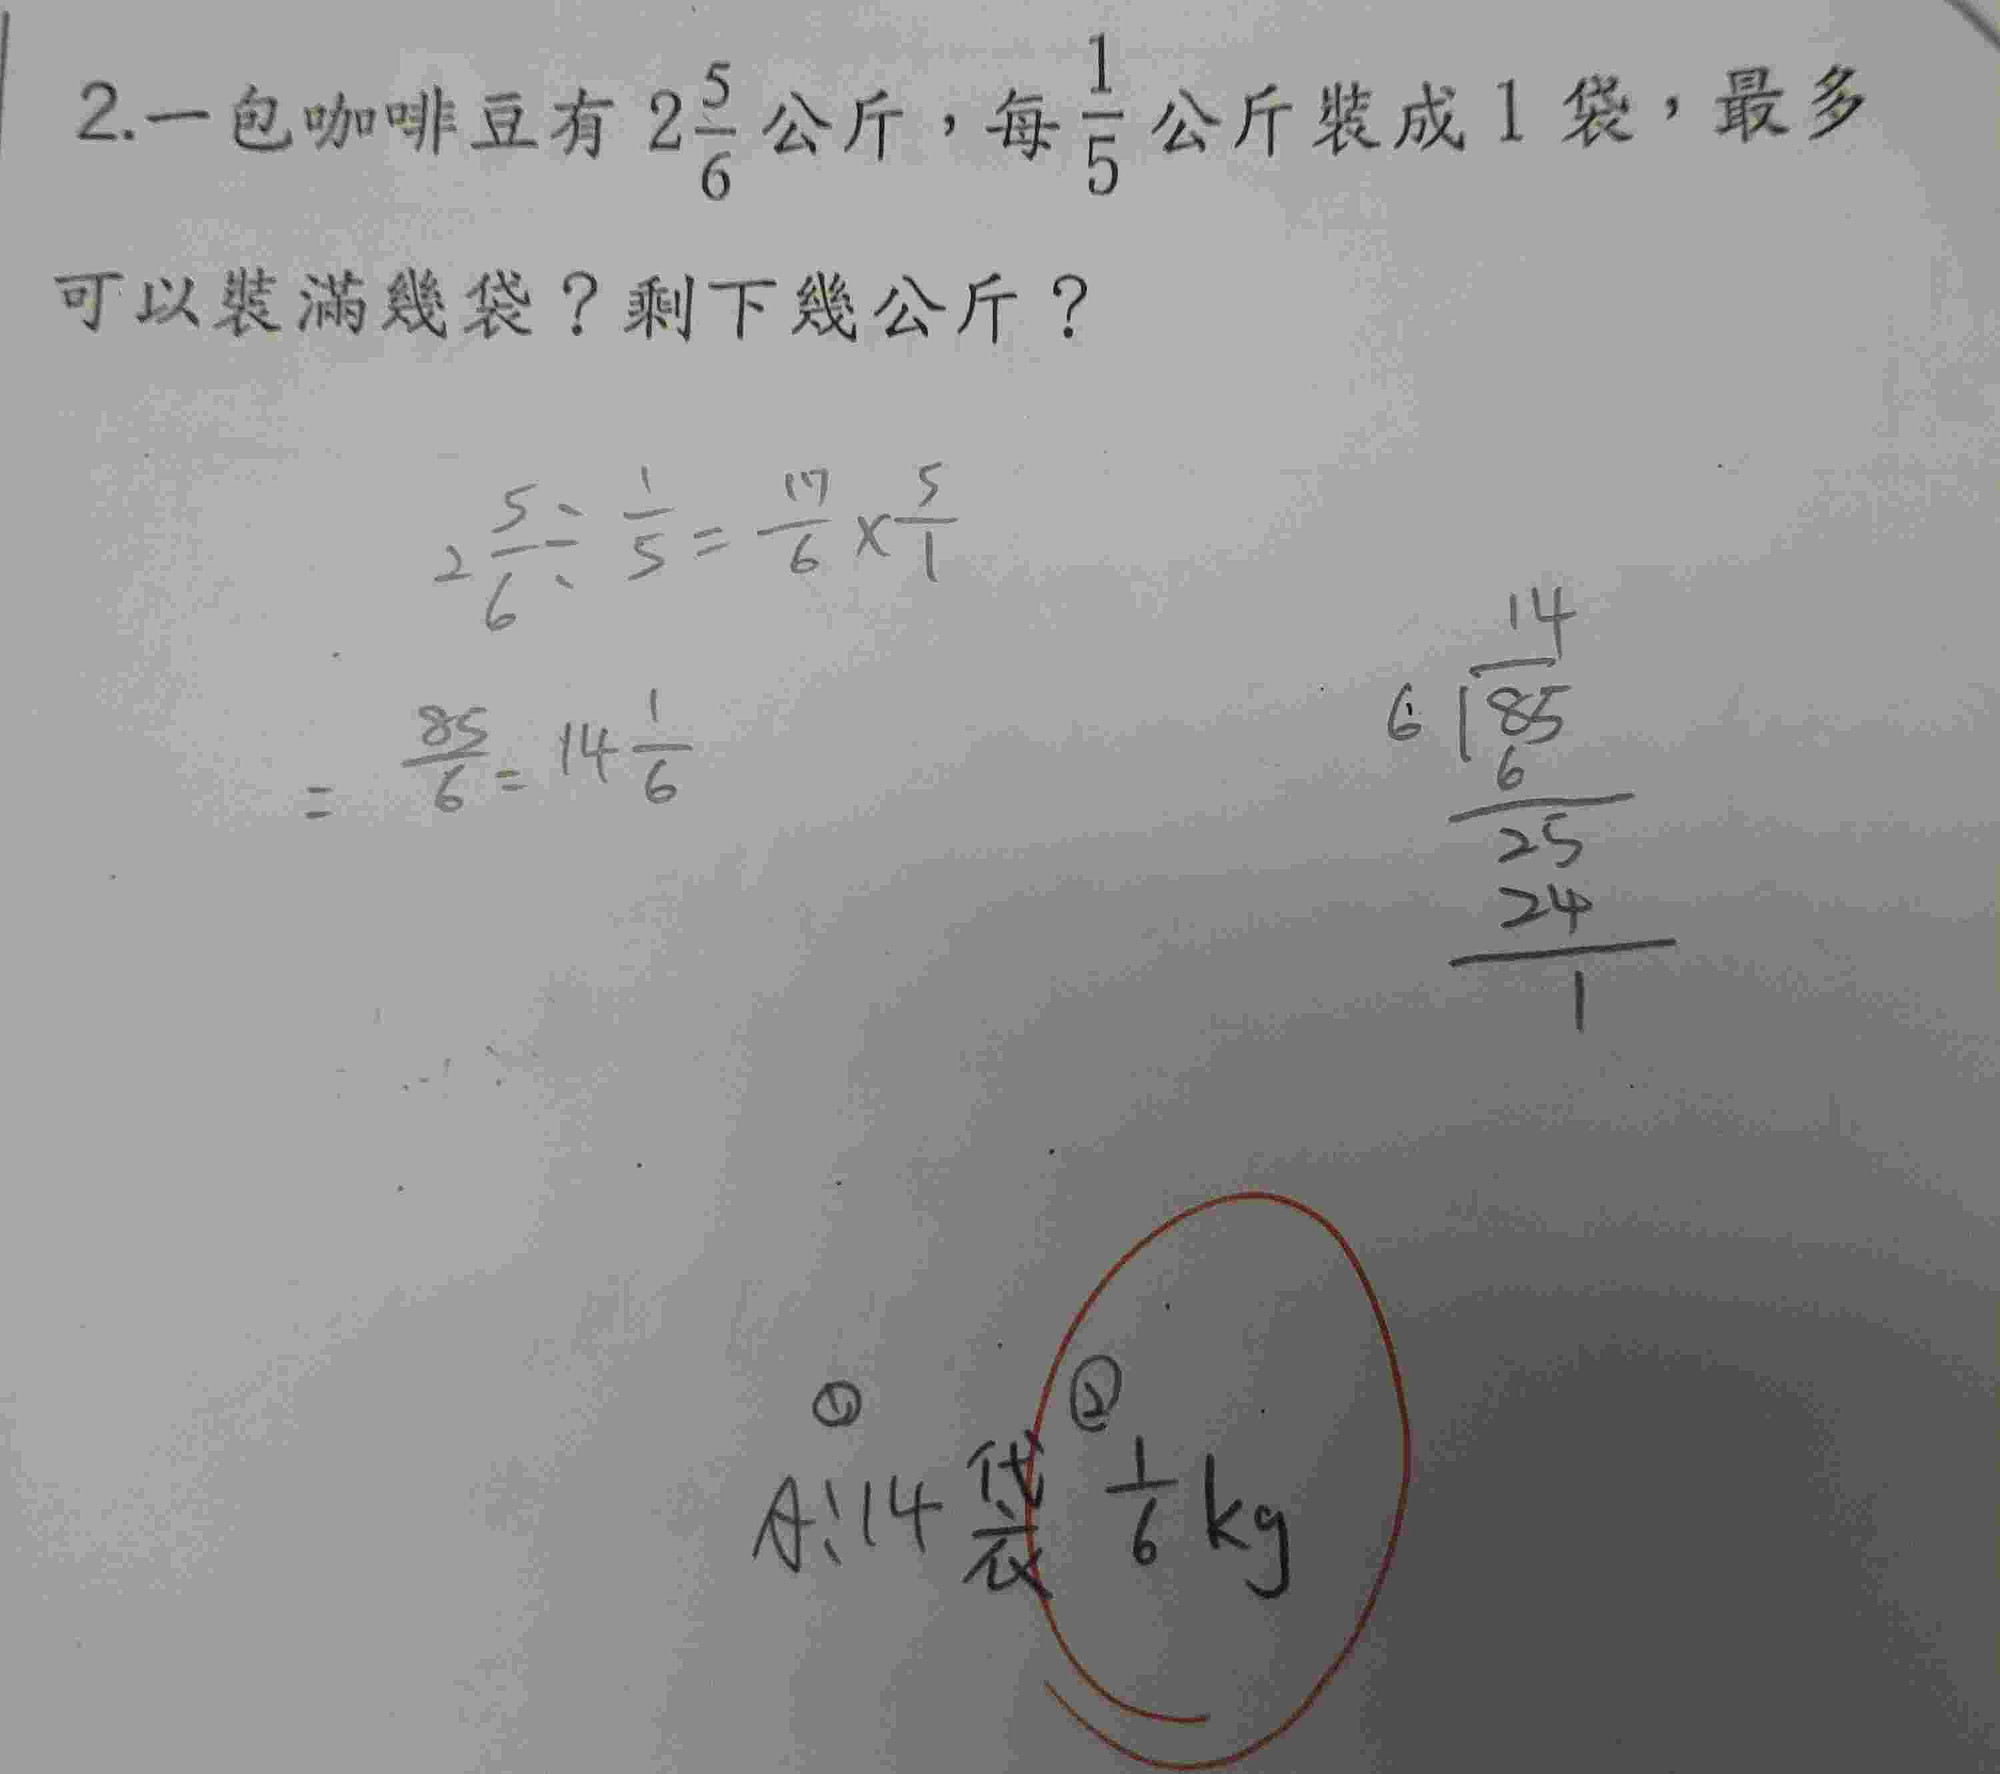 2.一包咖啡豆有 2 5/6 公斤，每 1/5 公斤裝成 1 袋，最多
可以裝滿幾袋？剩下幾公斤？
2 5/6 ÷ 1/5 = 17/6 × 5/1
= 85/6 = 14 1/6
14
6 85
6
25
24
1
① ②
A:14袋 1/6 kg